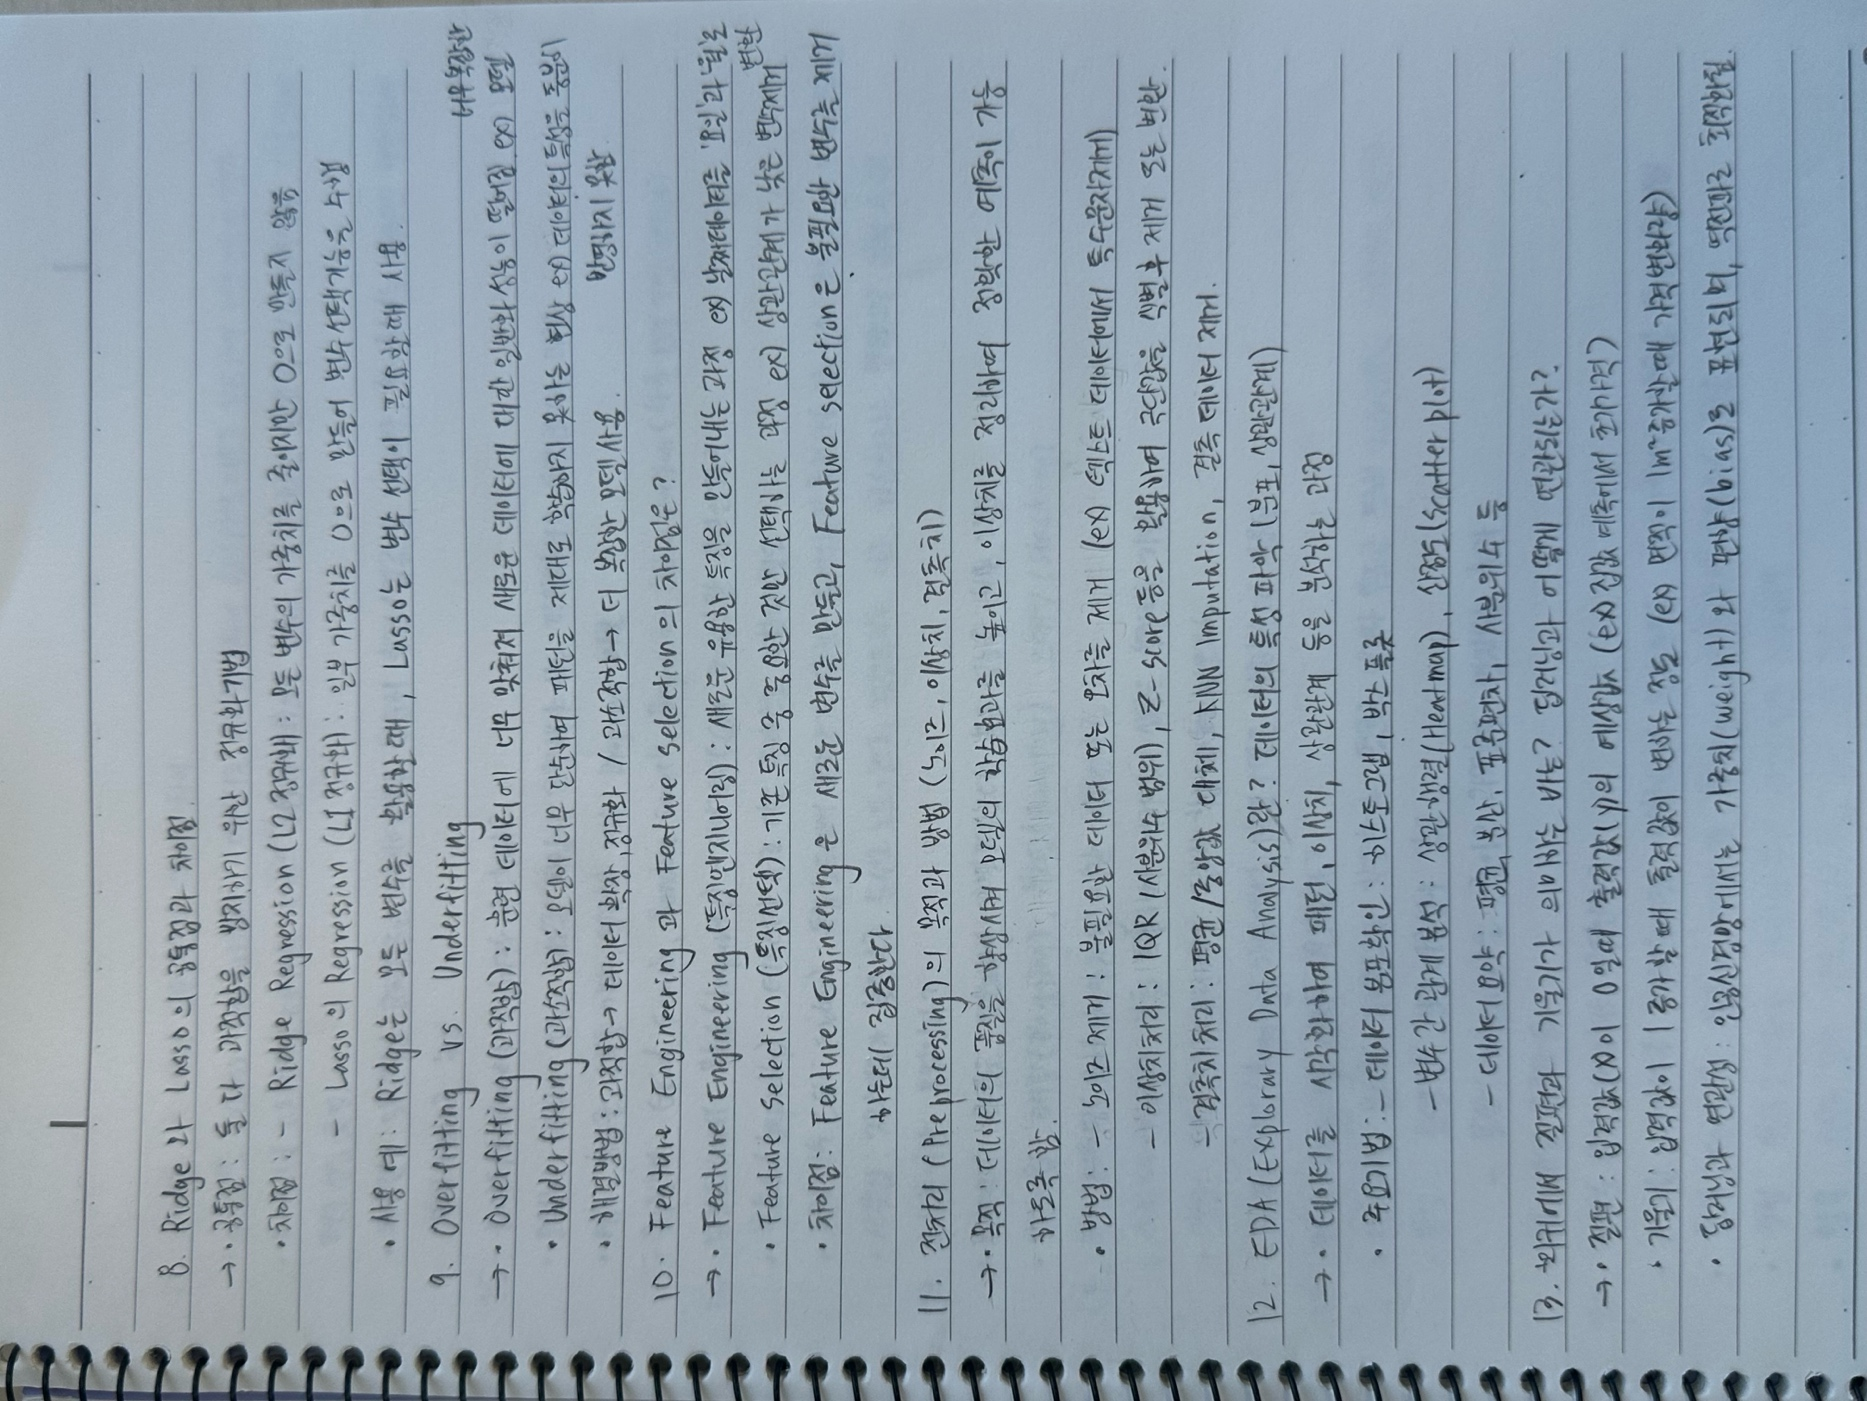 8. Ridge 와 Lasso의 공통점과 차이점.
→ • 공통점 : 둘 다 과적합을 방지하기 위한 정규화기법
• 차이점 : - Ridge Regression (L2 정규화) : 모든 변수의 가중치를 줄이지만 0으로 만들지 않음
- Lasso의 Regression (L1 정규화) : 일부 가중치를 0으로 만들어 변수선택기능을 수행
• 사용 예 : Ridge는 모든 변수를 활용할 때, Lasso는 변수 선택이 필요할때 사용.
9. Overfitting vs. Underfitting
너무복잡한
→ • Overfitting (과적합) : 훈련 데이터에 너무 맞춰져 새로운 데이터에 대한 일반화 성능이 떨어짐 ex) 모델
• Underfitting (과소적합) : 모델이 너무 단순하여 패턴을 제대로 학습하지 못하는 현상 ex) 데이터의특징을 충분히
반영하지 못함
• 해결방법 : 과적합→ 데이터 확장, 정규화 / 과소적합→ 더 복잡한 모델사용
10. Feature Engineering 과 Feature selection 의 차이점은?
→ • Feature Engineering (특징엔지니어링) : 새로운 유용한 특징을 만들어내는 과정 ex) 날짜데이터를 '요일'과 '월'로
변환
• Feature selection (특징선택) : 기존 특징 중 중요한 것만 선택하는 과정 ex) 상관관계가 낮은 변수제거
• 차이점 : Feature Engineering 은 새로운 변수를 만들고, Feature selection은 불필요한 변수를 제거
하는데 집중한다
11. 전처리 (Preprocessing)의 목적과 방법 (노이즈, 이상치, 결측치)
→ • 목적 : 데이터의 품질을 향상시켜 모델의 학습효과를 높이고, 이상치를 정리하여 정확한 예측이 가능
하도록 함.
• 방법 : - 노이즈 제거 : 불필요한 데이터 또는 오차를 제거 (ex) 텍스트 데이터에서 특수문자제거)
- 이상치처리 : IQR (사분위수 범위), Z-score 등을 활용하여 극단값을 식별후 제거 또는 변환.
- 결측치 처리 : 평균/중앙값 대체, KNN Imputation, 결측 데이터 제거.
12. EDA (Exploratory Data Analysis)란? 데이터의 특성 파악 (분포, 상관관계)
→ • 데이터를 시각화하여 패턴, 이상치, 상관관계 등을 분석하는 과정
• 주요기법 : - 데이터 분포확인 : 히스토그램, 박스 플롯
- 변수 간 관계 분석 : 상관행렬(Heatmap), 산점도(scatter plot)
- 데이터 요약 : 평균, 분산, 표준편차, 사분위수 등
13. 회귀에서 절편과 기울기의 의미는? 그리고 딥러닝과 어떻게 연관되는가?
→ • 절편 : 입력값(x)이 0일때 출력값(y)의 예상값 (ex) 집값 예측에서 초기가격)
• 기울기 : 입력값이 1 증가할 때 출력값의 변화량을 결정 (ex) 면적이 1m² 증가할때 가격변화량)
• 딥러닝과 연관성 : 인공신경망에서는 가중치(weight)와 편향(bias)로 표현되며, 역전파로 최적화됨